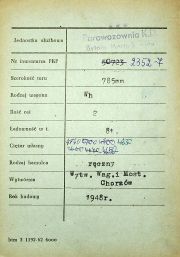 Jednostka służbowa Parowozownia Kl.
Nr inwentarza PKP 50723 2352-7
Szerokość toru 785mm
Rodzaj wagonu Wh
Ilość osi 2
Ładowność w t. 8t.
Ciężar własny
Rodzaj hamulca ręczny
Wytwórnia Wytw. Wag.i Most.
Chorzów
Rok budowy 1948r.